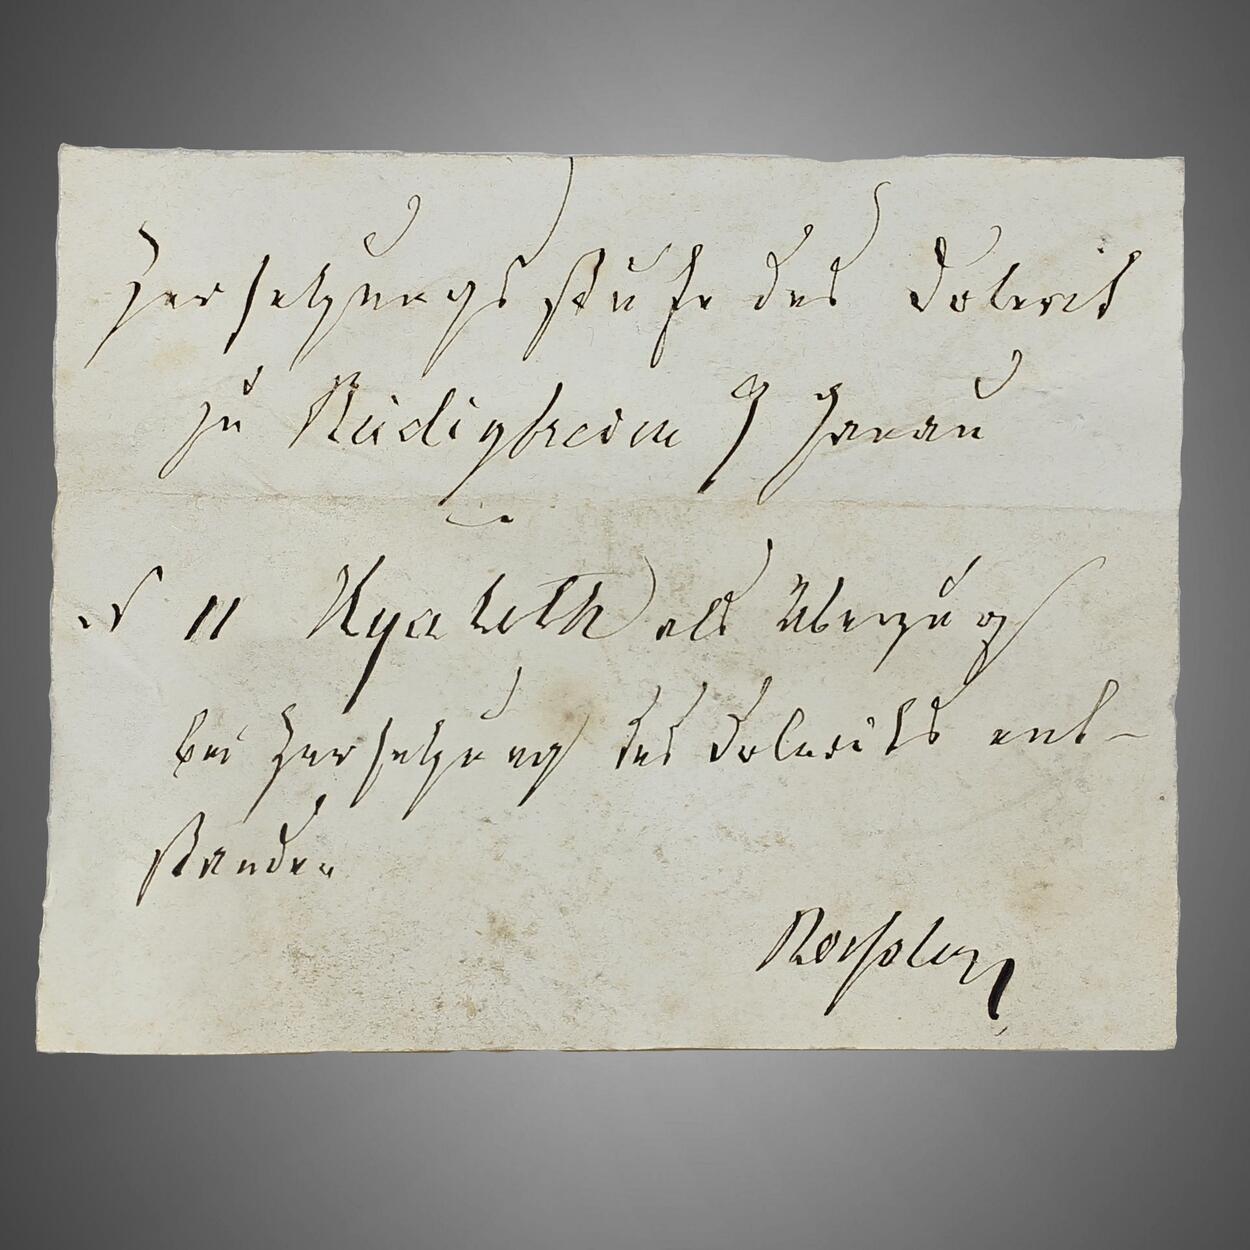 Zersetzungsstufe des Dolerit
zu Rüdigheim Hanau
11 Hyalith als Überzug
bei Zersetzung des Dolerits ent-
standen
Roessler